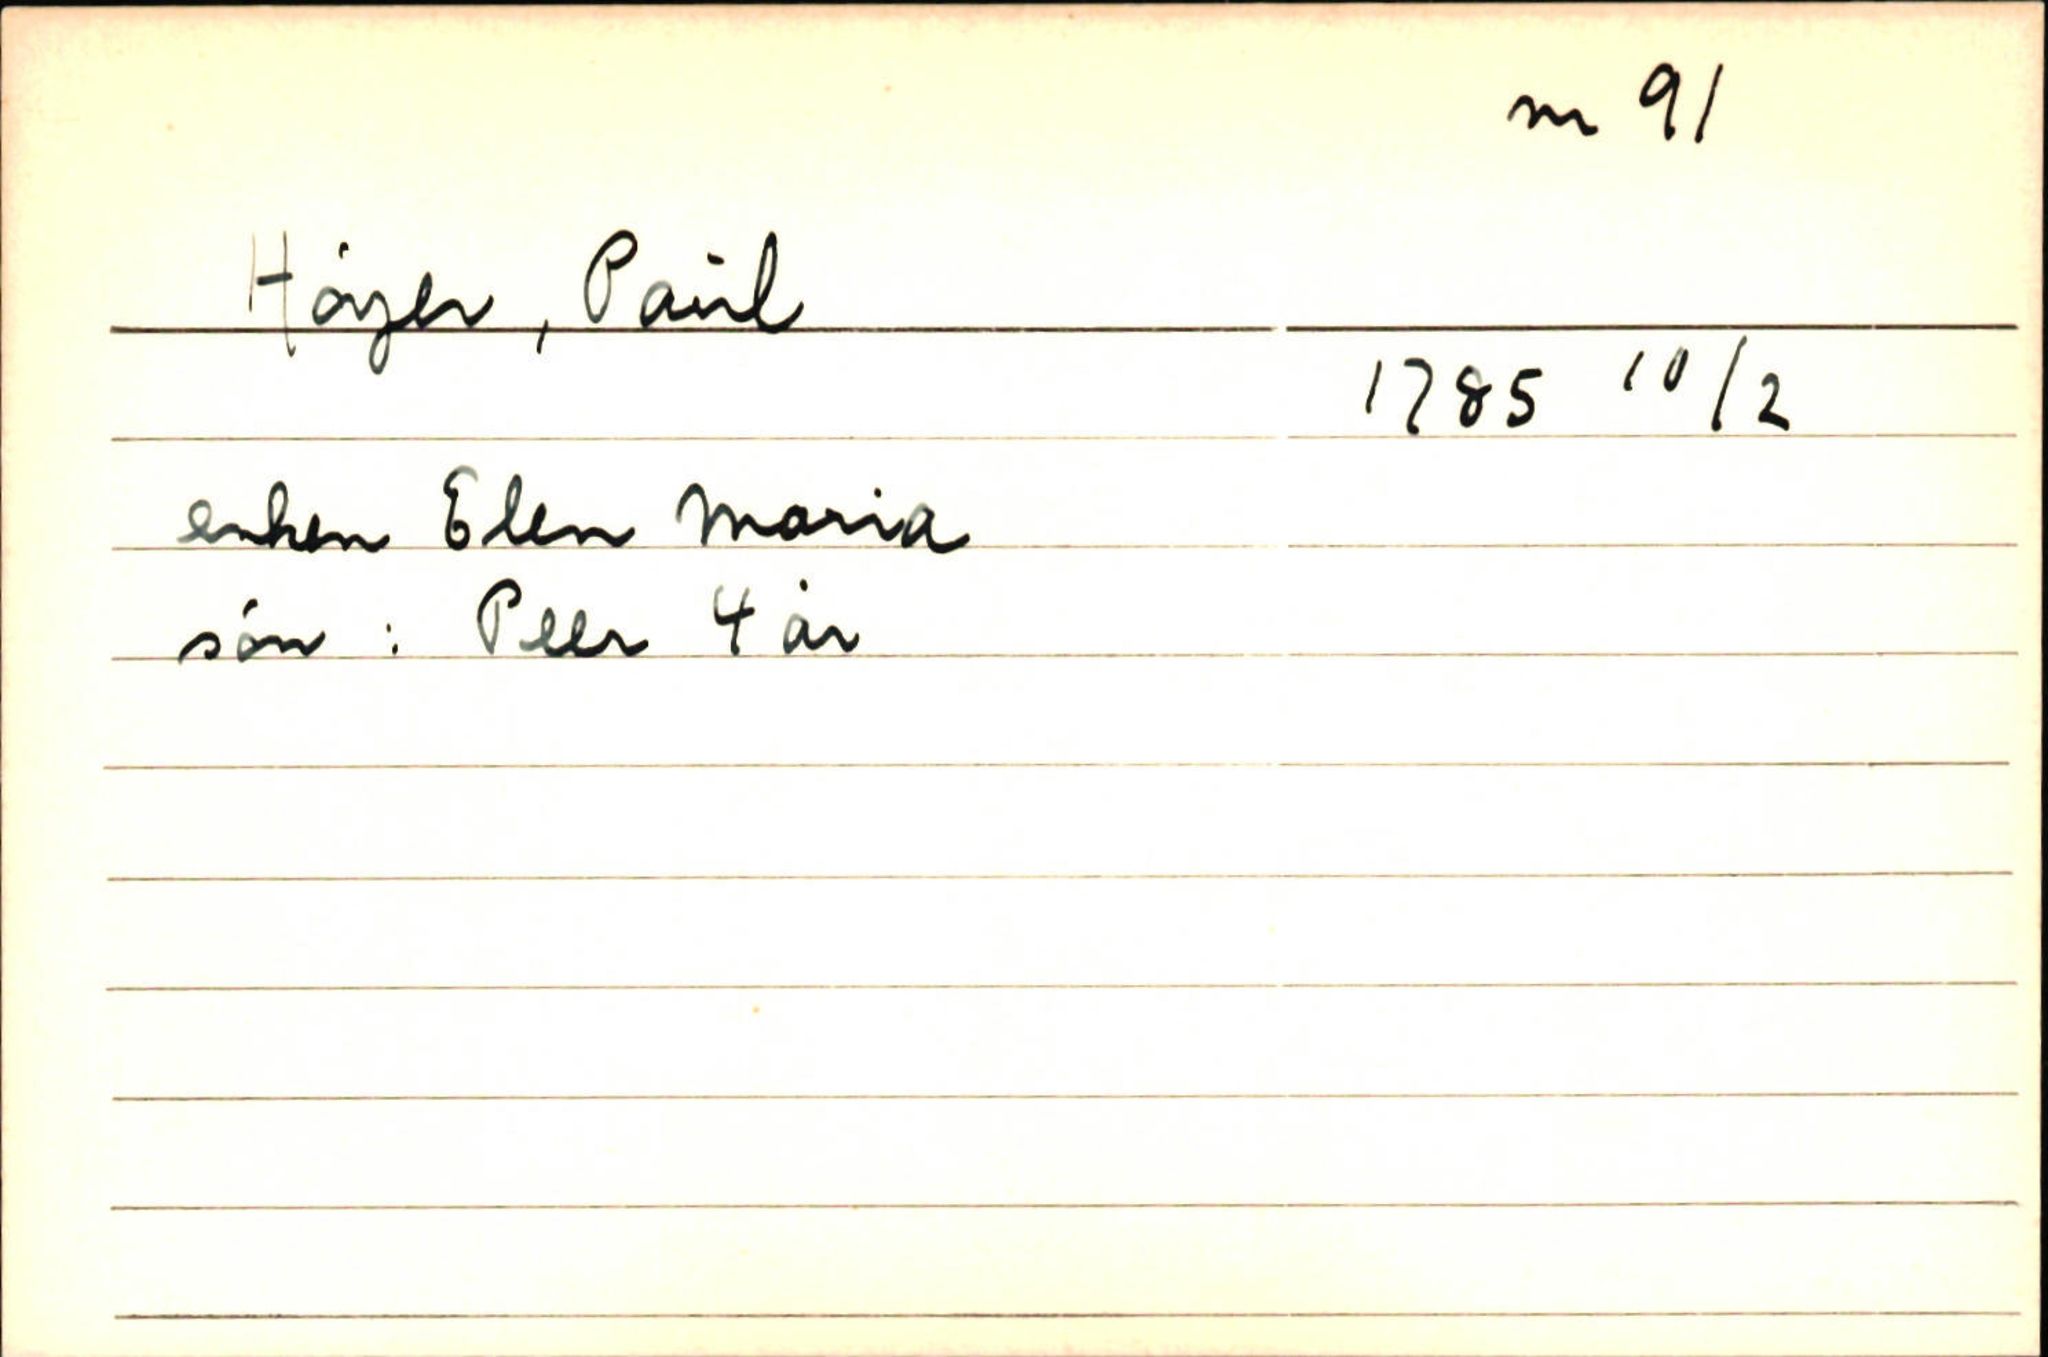 nr 91
Höyer, Paul
1785 10/2
enken Elen Maria
sön : Peer 4 år